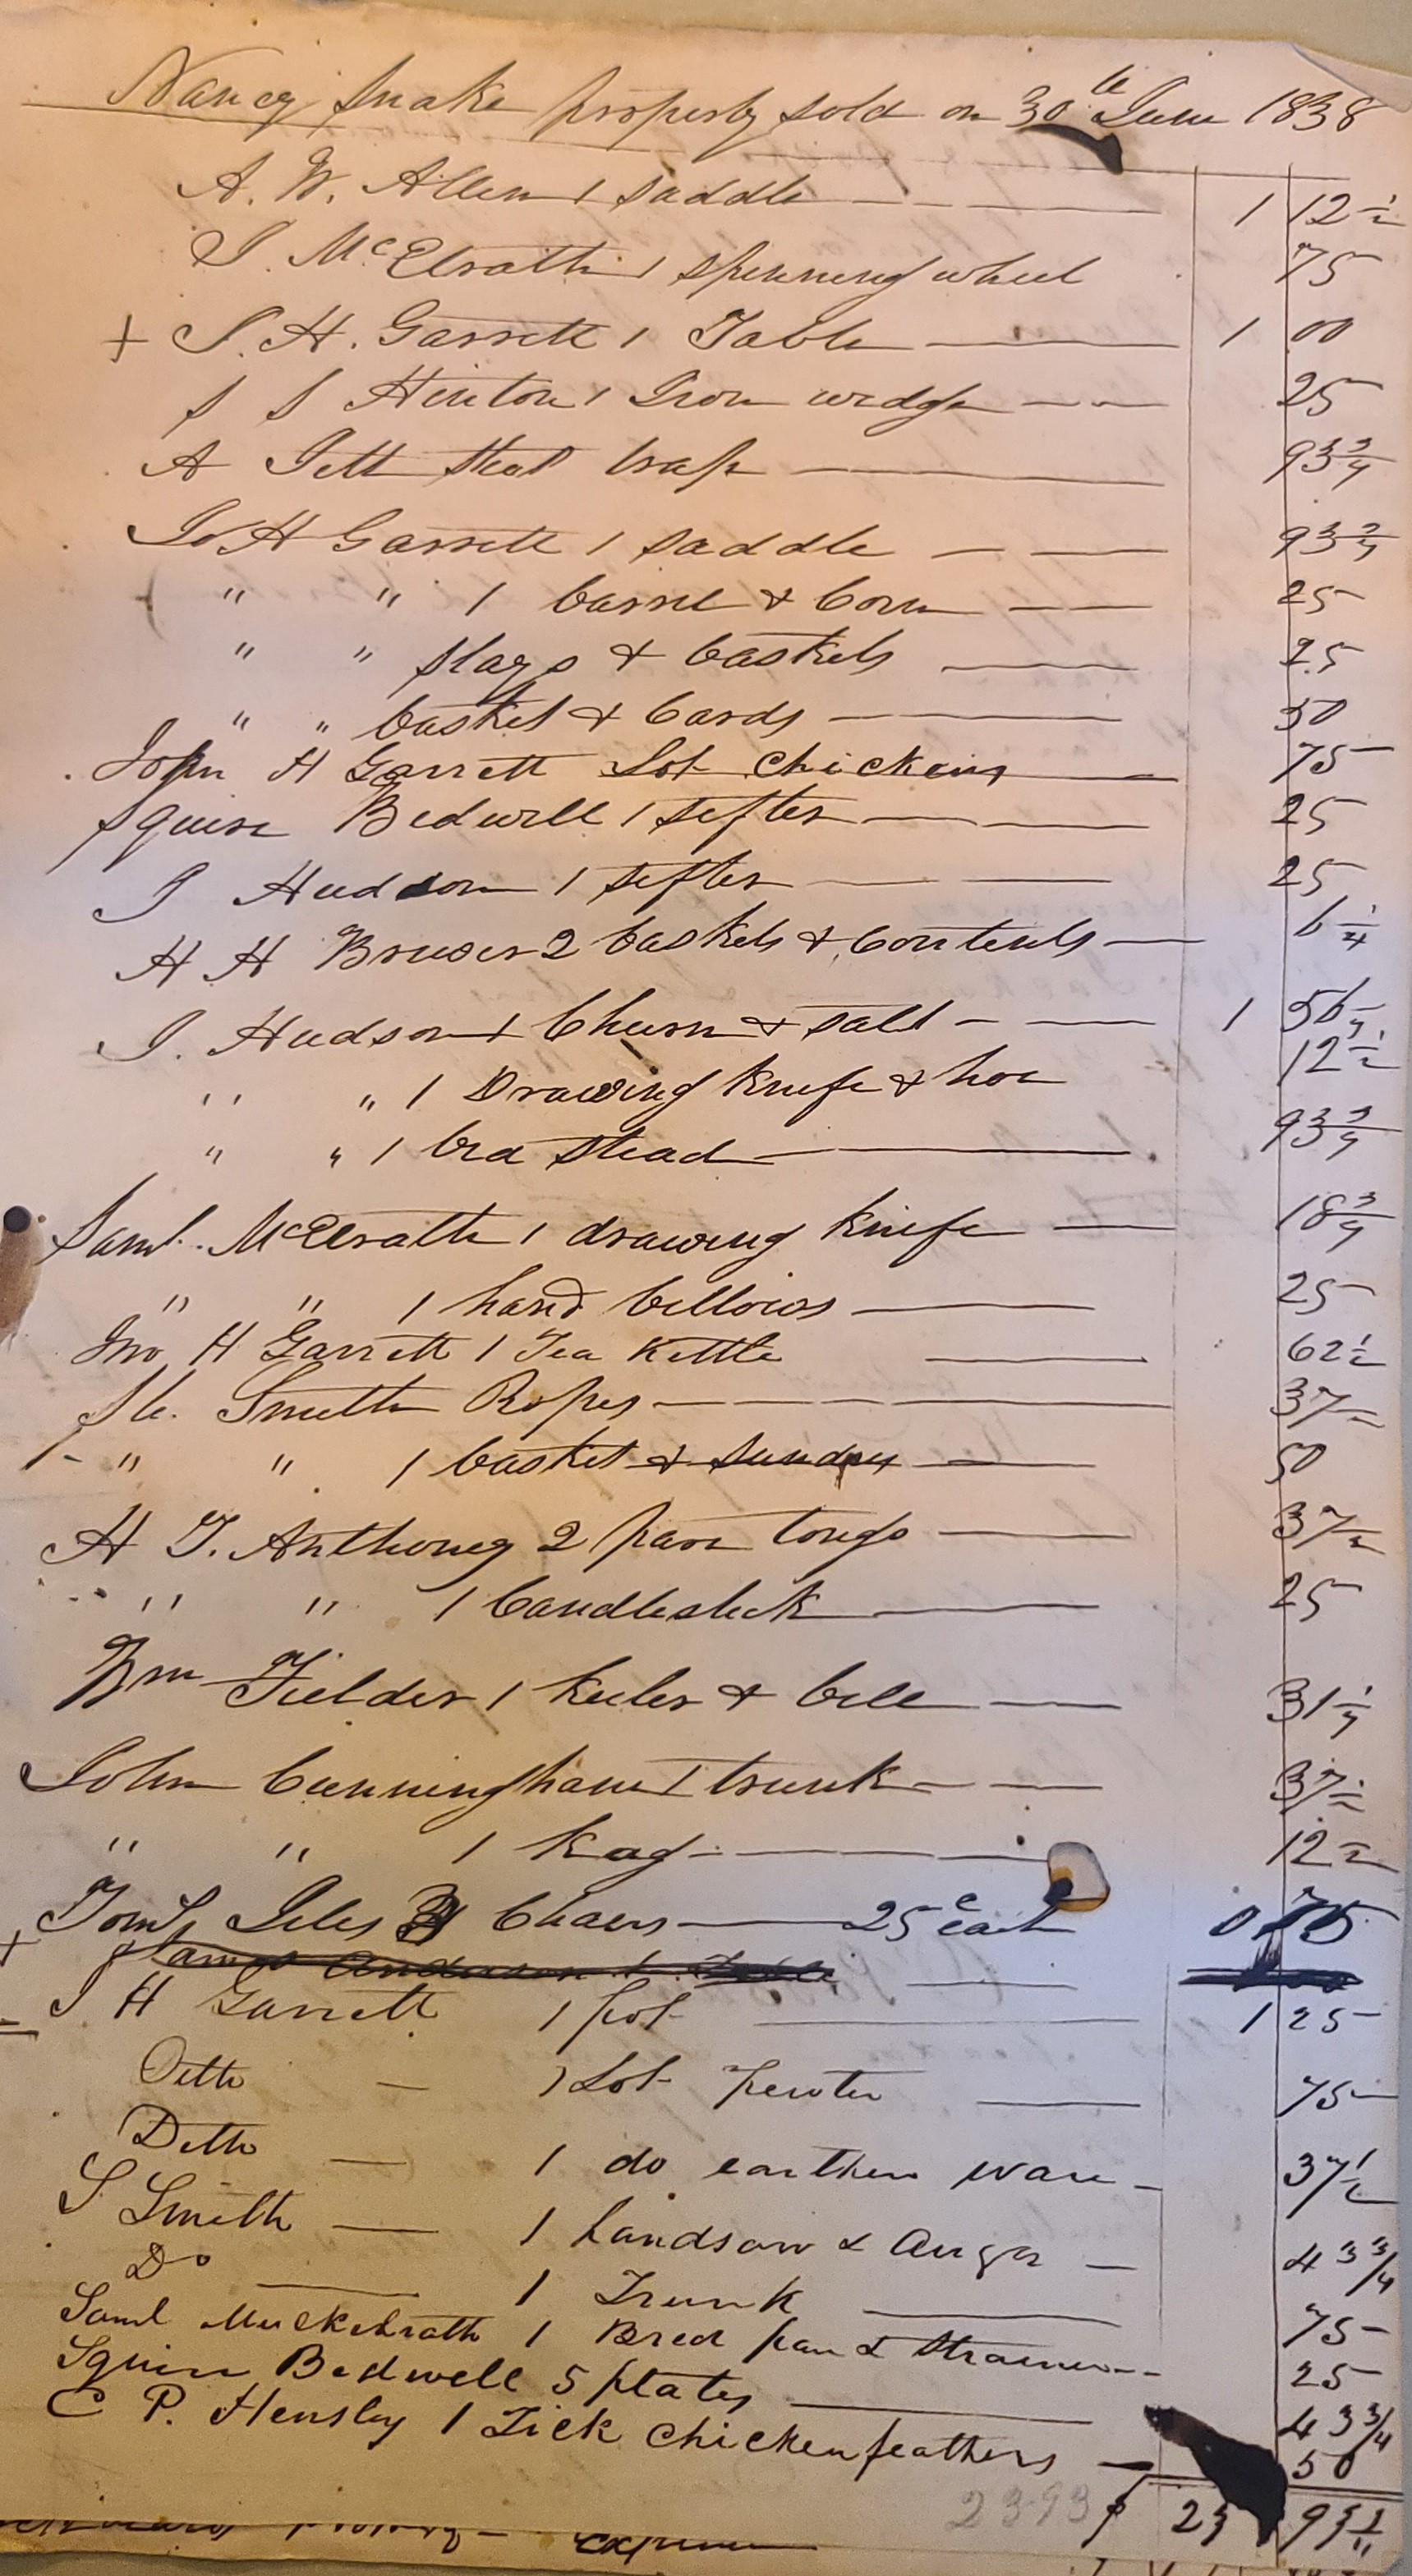 Nancy Snake property sold on 30th June 1838
A. W. Allen 1 saddle 1 12 1/2
J. McElrath 1 spinning wheel 75
+ J. H. Garrett 1 Table 1 00
S S Hinton 1 Iron wedge 25
A Jett steel trap 93 3/4
Jo H Garrett 1 saddle 93 3/4
" " 1 barrel & Corn 25
" " slays & baskets 25
" " basket & Cards 50
John H Garrett Lot Chickens 75
Squire Bedwell 1 sifter 25
J Hudson 1 sifter 25
H H 2 baskets & Contents 6 1/4
J. Hudson 1 Churn & salt 1 56
" " 1 Drawing Knife & hoe 12 1/2
" " 1 bed stead 93 3/4
Saml. McElrath 1 drawing Knife 18 3/4
" " 1 hand bellows 25
Jno H Garrett 1 Tea Kettle 62 1/2
Smith Ropes 37 1/2
" " 1 basket & sundry 50
H T. Anthony 2 pair tongs 37 1/2
" " 1 Candlestick 25
Wm Fielder 1 Keeler & bell 31 1/4
John Cunningham 1 trunk 37 1/2
" " 1 Kag 12 1/2
3 Chairs 25 c each 0 75
James Anderson 1 Table
J H Garrett 1 pot 1 25
Ditto 1 Lot Pewter 75
Ditto 1 do earthen ware 37 1/2
S Smith 1 handsaw & Auger 43 3/4
Do 1 Trunk 75
Saml Muckelrath 1 Bred pan & Strainer 25
Squire Bedwell 5 plates 43 3/4
C P. Hensley 1 Tick Chicken feathers 50
2393 $ 23 93
expense